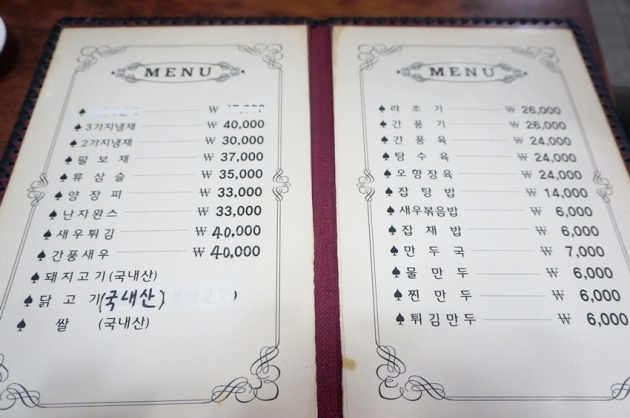 MENU
₩
♠ 3가지냉채 ₩ 40,000
♠ 2가지냉채 ₩ 30,000
♠ 팔보채 ₩ 37,000
♠ 류삼슬 ₩ 35,000
♠ 양장피 ₩ 33,000
♠ 난자완스 ₩ 33,000
♠ 새우튀김 ₩ 40,000
♠ 간풍새우 ₩ 40,000
♠ 돼지고기(국내산)
♠ 닭고기(국내산)
♠ 쌀 (국내산)
MENU
♠ 라조기 ₩ 26,000
♠ 간풍기 ₩ 26,000
♠ 간풍육 ₩ 24,000
♠ 탕수육 ₩ 24,000
♠ 오향장육 ₩ 24,000
♠ 잡탕밥 ₩ 14,000
♠ 새우볶음밥 ₩ 6,000
♠ 잡채밥 ₩ 6,000
♠ 만두국 ₩ 7,000
♠ 물만두 ₩ 6,000
♠ 찐만두 ₩ 6,000
♠ 튀김만두 ₩ 6,000